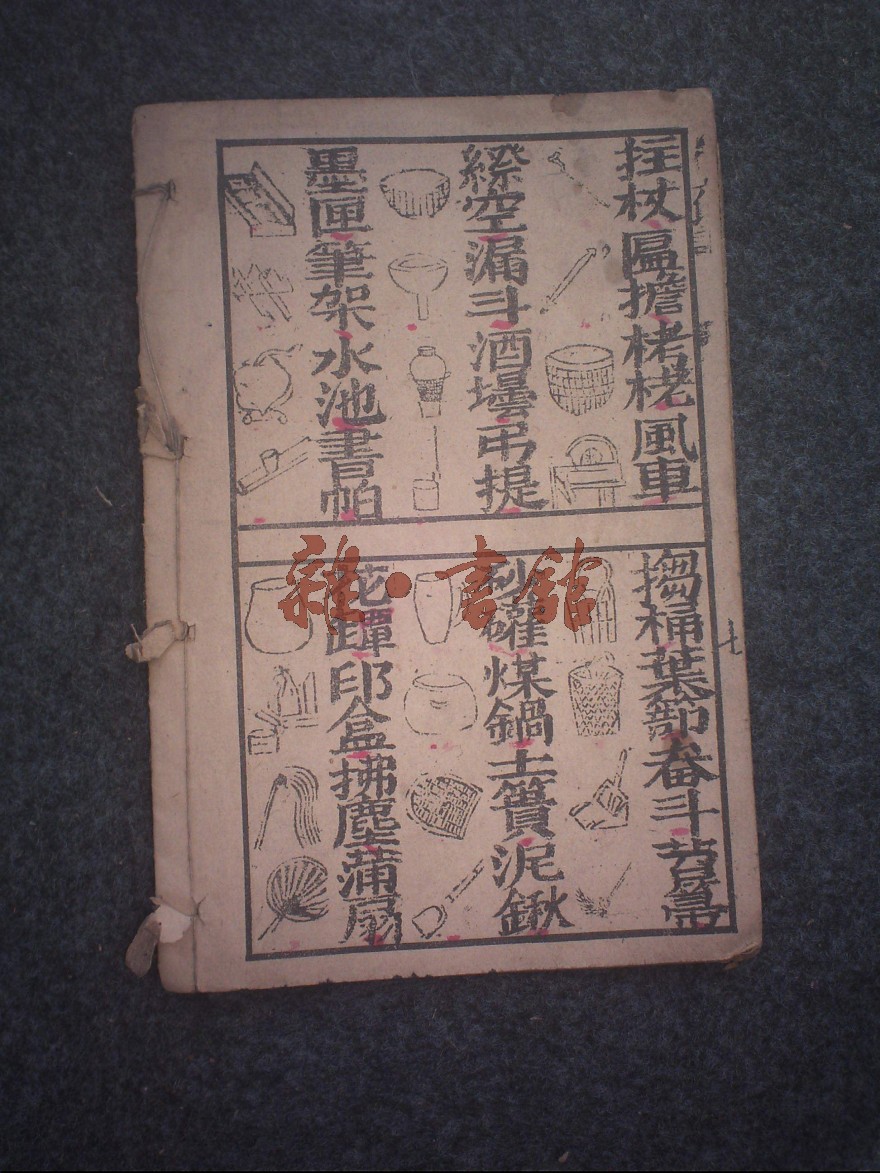 拄杖匾擔栲栳風車
空漏斗酒壜吊提
墨匣筆架水池書帕
桶葉篰畚斗帚
砂罐煤鍋土簣泥鍬
花罈印盒拂塵蒲扇
七
雜·書館